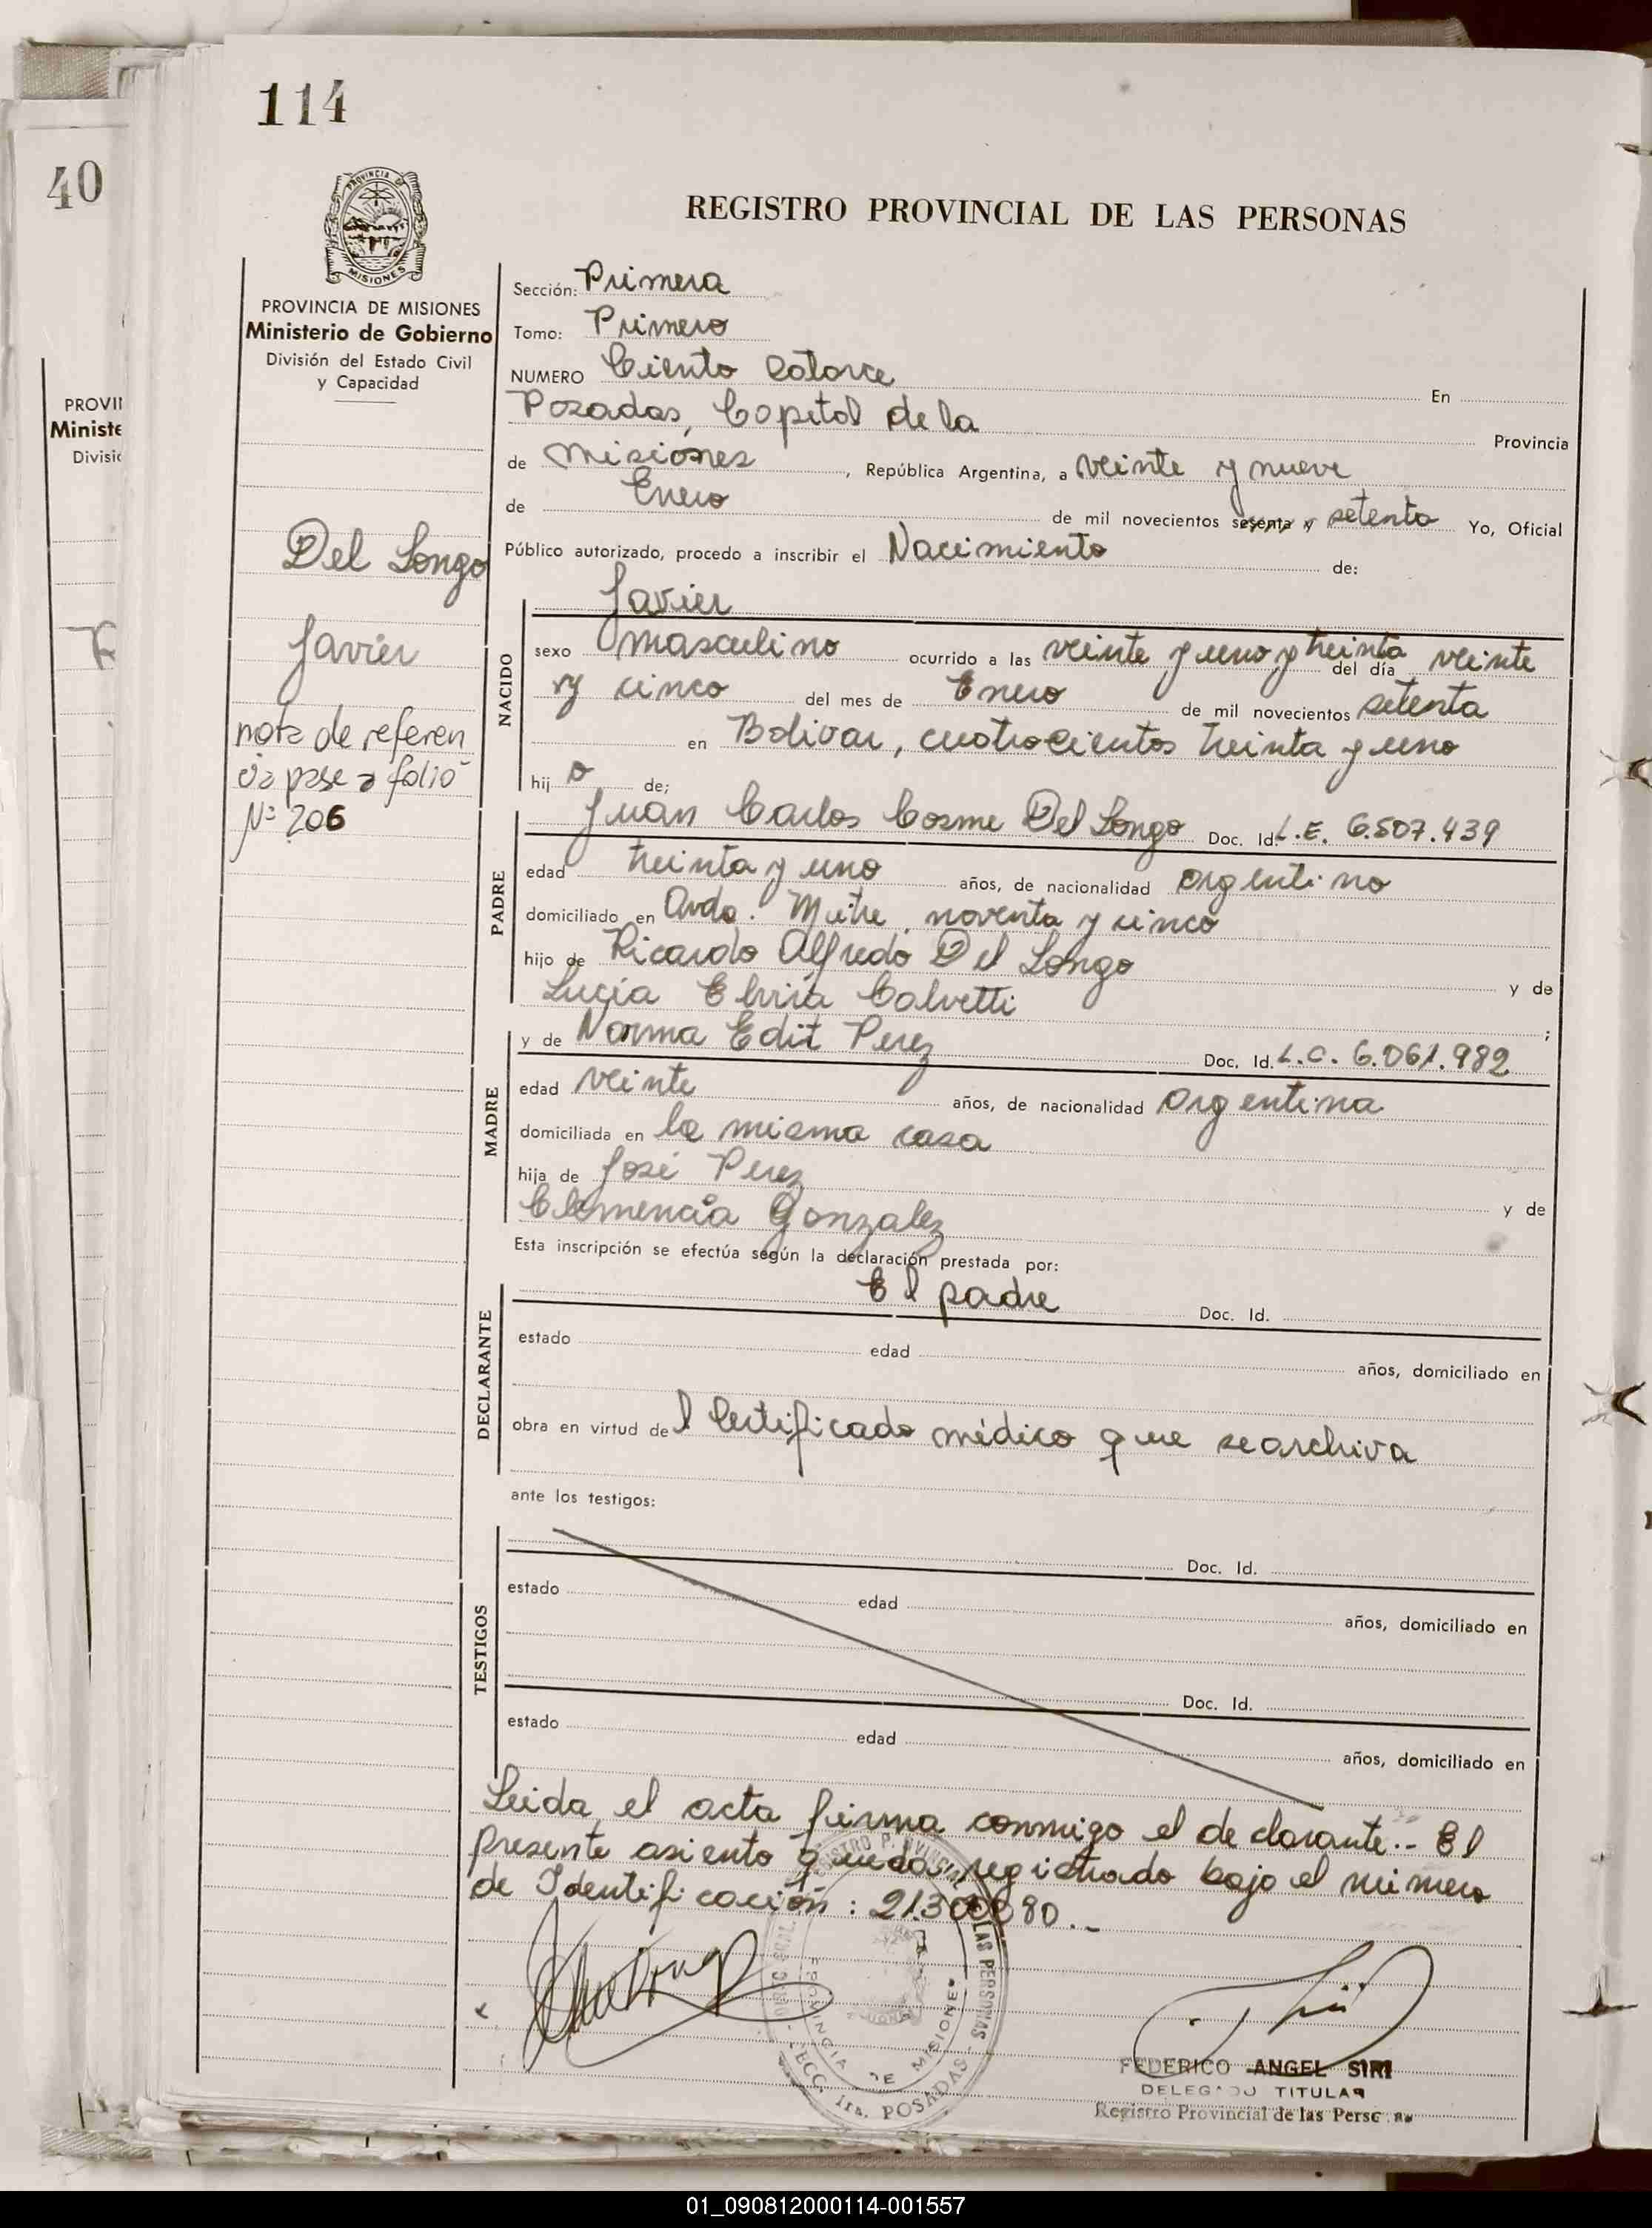 114
40
PROVINCIA DE
MISIONES
REGISTRO PROVINCIAL DE LAS PERSONAS
PROVINCIA DE MISIONES
Ministerio de Gobierno
División del Estado Civil
y Capacidad
PROVIN
Ministe
Divisić
Del Longo
Javier
nota de referen
cia pase a folio
Nº 206
Sección: Primera
Tomo: Primero
NUMERO Ciento Catorce En
Posadas, Capital de la Provincia
de Misiones, República Argentina, a veinte y nueve
de Enero de mil novecientos sesenta y setenta Yo, Oficial
Público autorizado, procedo a inscribir el Nacimiento de:
Javier
NACIDO
sexo masculino ocurrido a las veinte y uno y treinta del día veinte
y cinco del mes de Enero de mil novecientos setenta
en Bolivar, cuatrocientos treinta y uno
hij o de;
PADRE
Juan Carlos Cosme Del Longo Doc. Id. L.E. 6.507.439
edad treinta y uno años, de nacionalidad argentino
domiciliado en Avda. Mitre, noventa y cinco
hijo de Ricardo Alfredo Del Longo y de
Lucía Elvira Calvetti ;
MADRE
y de Norma Edit Perez Doc. Id. L.C. 6.061.982
edad veinte años, de nacionalidad argentina
domiciliada en la misma casa
hija de José Perez y de
Clemencia Gonzalez
Esta inscripción se efectúa según la declaración prestada por:
DECLARANTE
El padre Doc. Id.
estado edad años, domiciliado en
obra en virtud de l Certificado médico que se archiva
ante los testigos:
TESTIGOS
Doc. Id.
estado edad años, domiciliado en
Doc. Id.
estado edad años, domiciliado en
Leida el acta firma conmigo el declarante.- El
presente asiento queda registrado bajo el número
de Identificación: 21.300.
LAS PERSONAS
PROVINCIA DE MISIONES
SECC. 1ra. POSADAS
FEDERICO ANGEL SIRI
DELEGADO TITULAR
Registro Provincial de las Personas
01_090812000114-001557